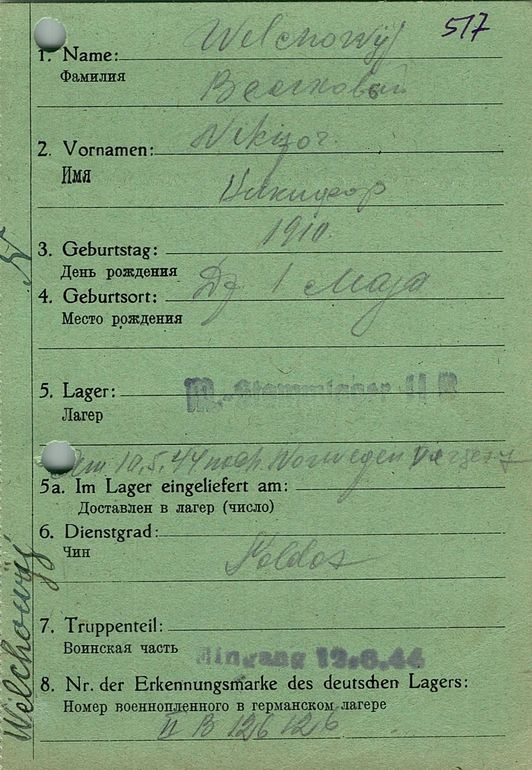 517
1. Name: Welchowÿ
Фамилия
2. Vornamen:
Имя
1910
3. Geburtstag:
День рождения
4. Geburtsort: 1 Maja
Место рождения
5. Lager: M.-Stammlager II B
Лагер
10.5.44 nach Norwegen
5a. Im Lager eingeliefert am:
Доставлен в лагер (число)
6. Dienstgrad:
Чин
Soldat
7. Truppenteil:
Воинская часть
Eingang 12.6.44
8. Nr. der Erkennungsmarke des deutschen Lagers:
Номер военнопленного в германском лагере
II B 126 126
Welchowÿ